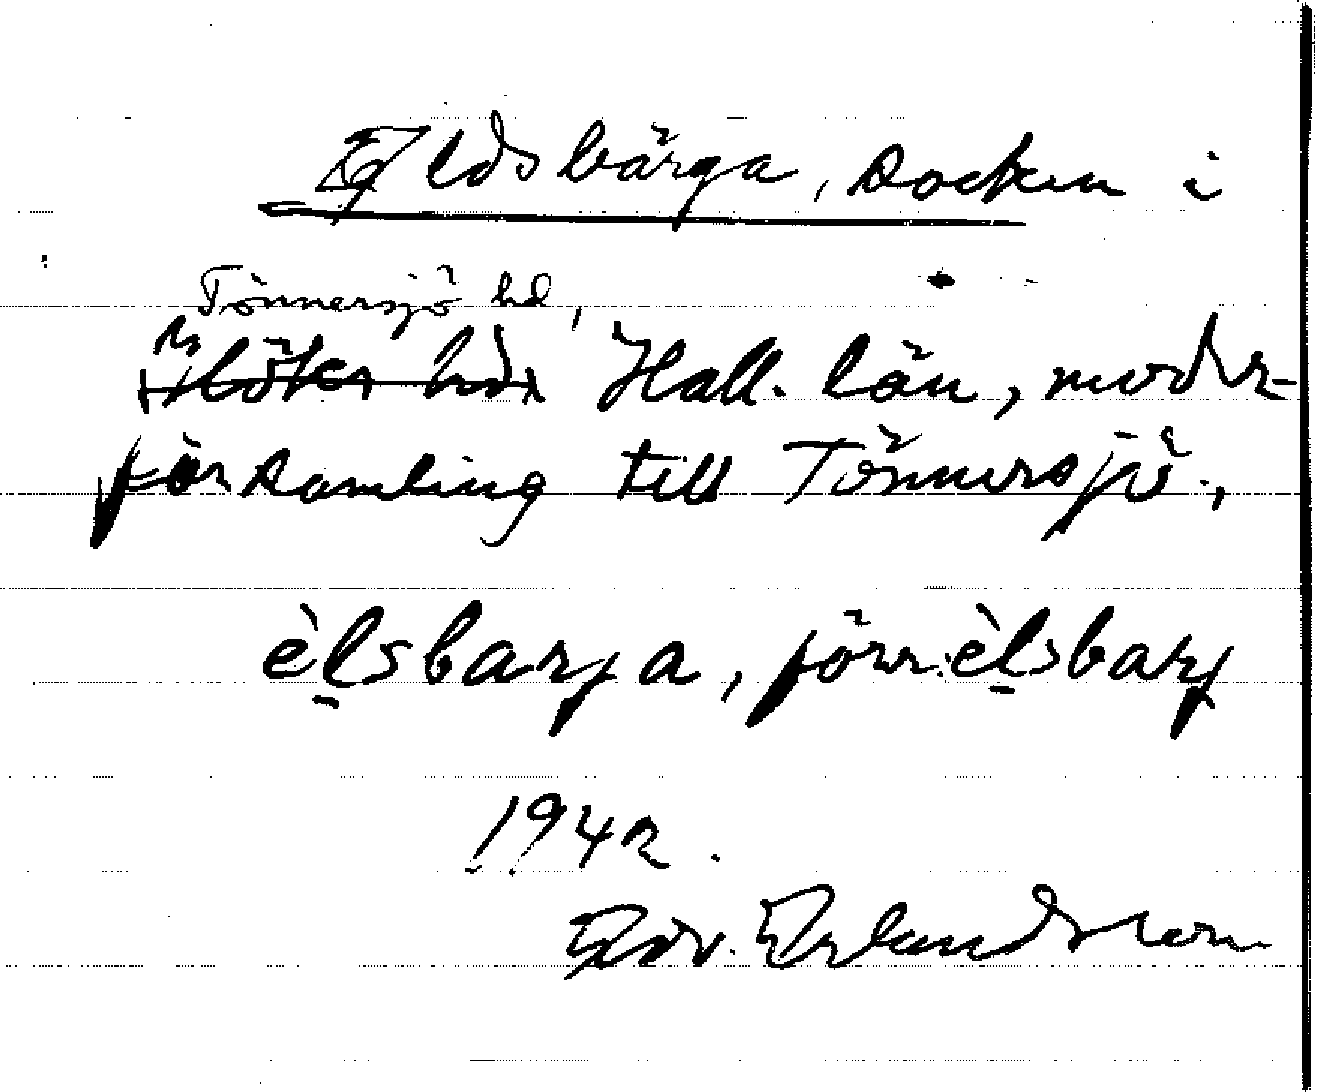 Eldsbärga, socken i
Tönnersjö hd,
Höks hd, Hall. län, moder-
församling till Tönnersjö.,
èl̠sbarja, förr: èl̠sbarj
1942.
Edv. Erlandsson